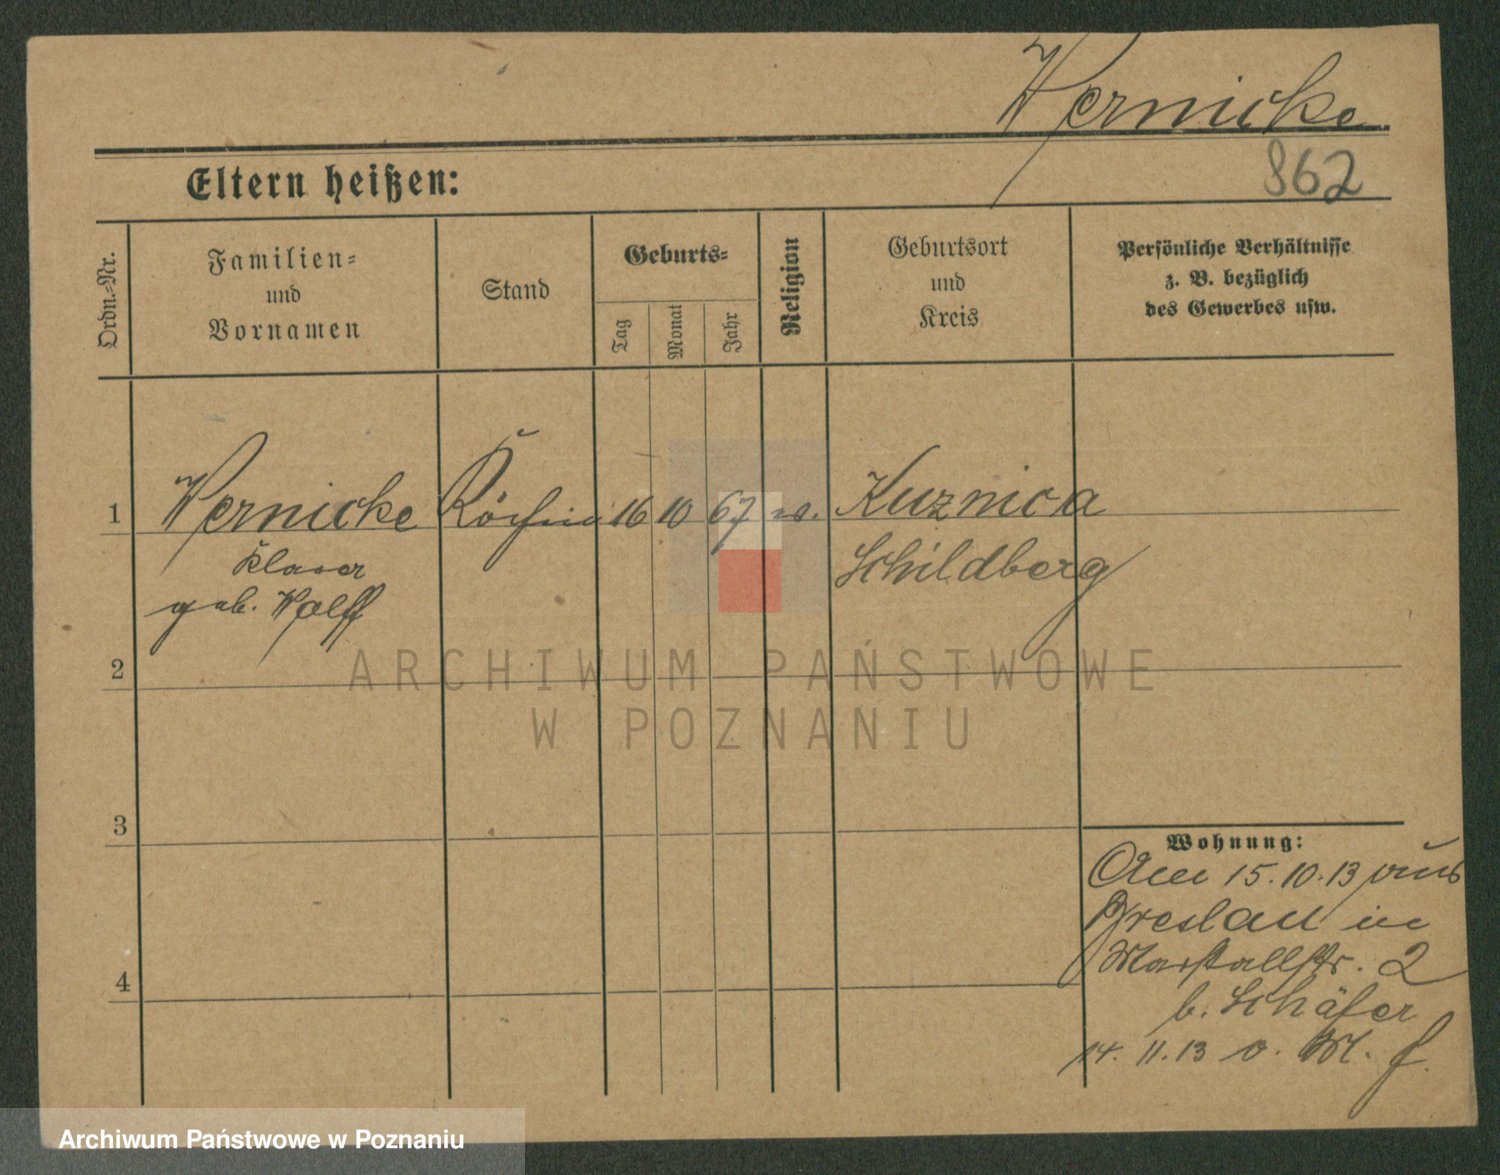 Wernicke
862
Eltern heißen:
Ordn.-Nr.
Familien-
und
Vornamen
Stand
Geburts-
Tag
Monat
Jahr
Religion
Geburtsort
und
Kreis
Persönliche Verhältnisse
z. B. bezüglich
des Gewerbes usw.
1 Wernicke Köchin 16 10 67 Kuznica
geb. Wolff
Schildberg
2
ARCHIWUM PAŃSTWOWE
W POZNANIU
3
4
Wohnung:
15.10.13 aus
Breslau in
Marstallstr. 2
b. Schäfer
14. 11. 13 v. M. f.
Archiwum Państwowe w Poznaniu